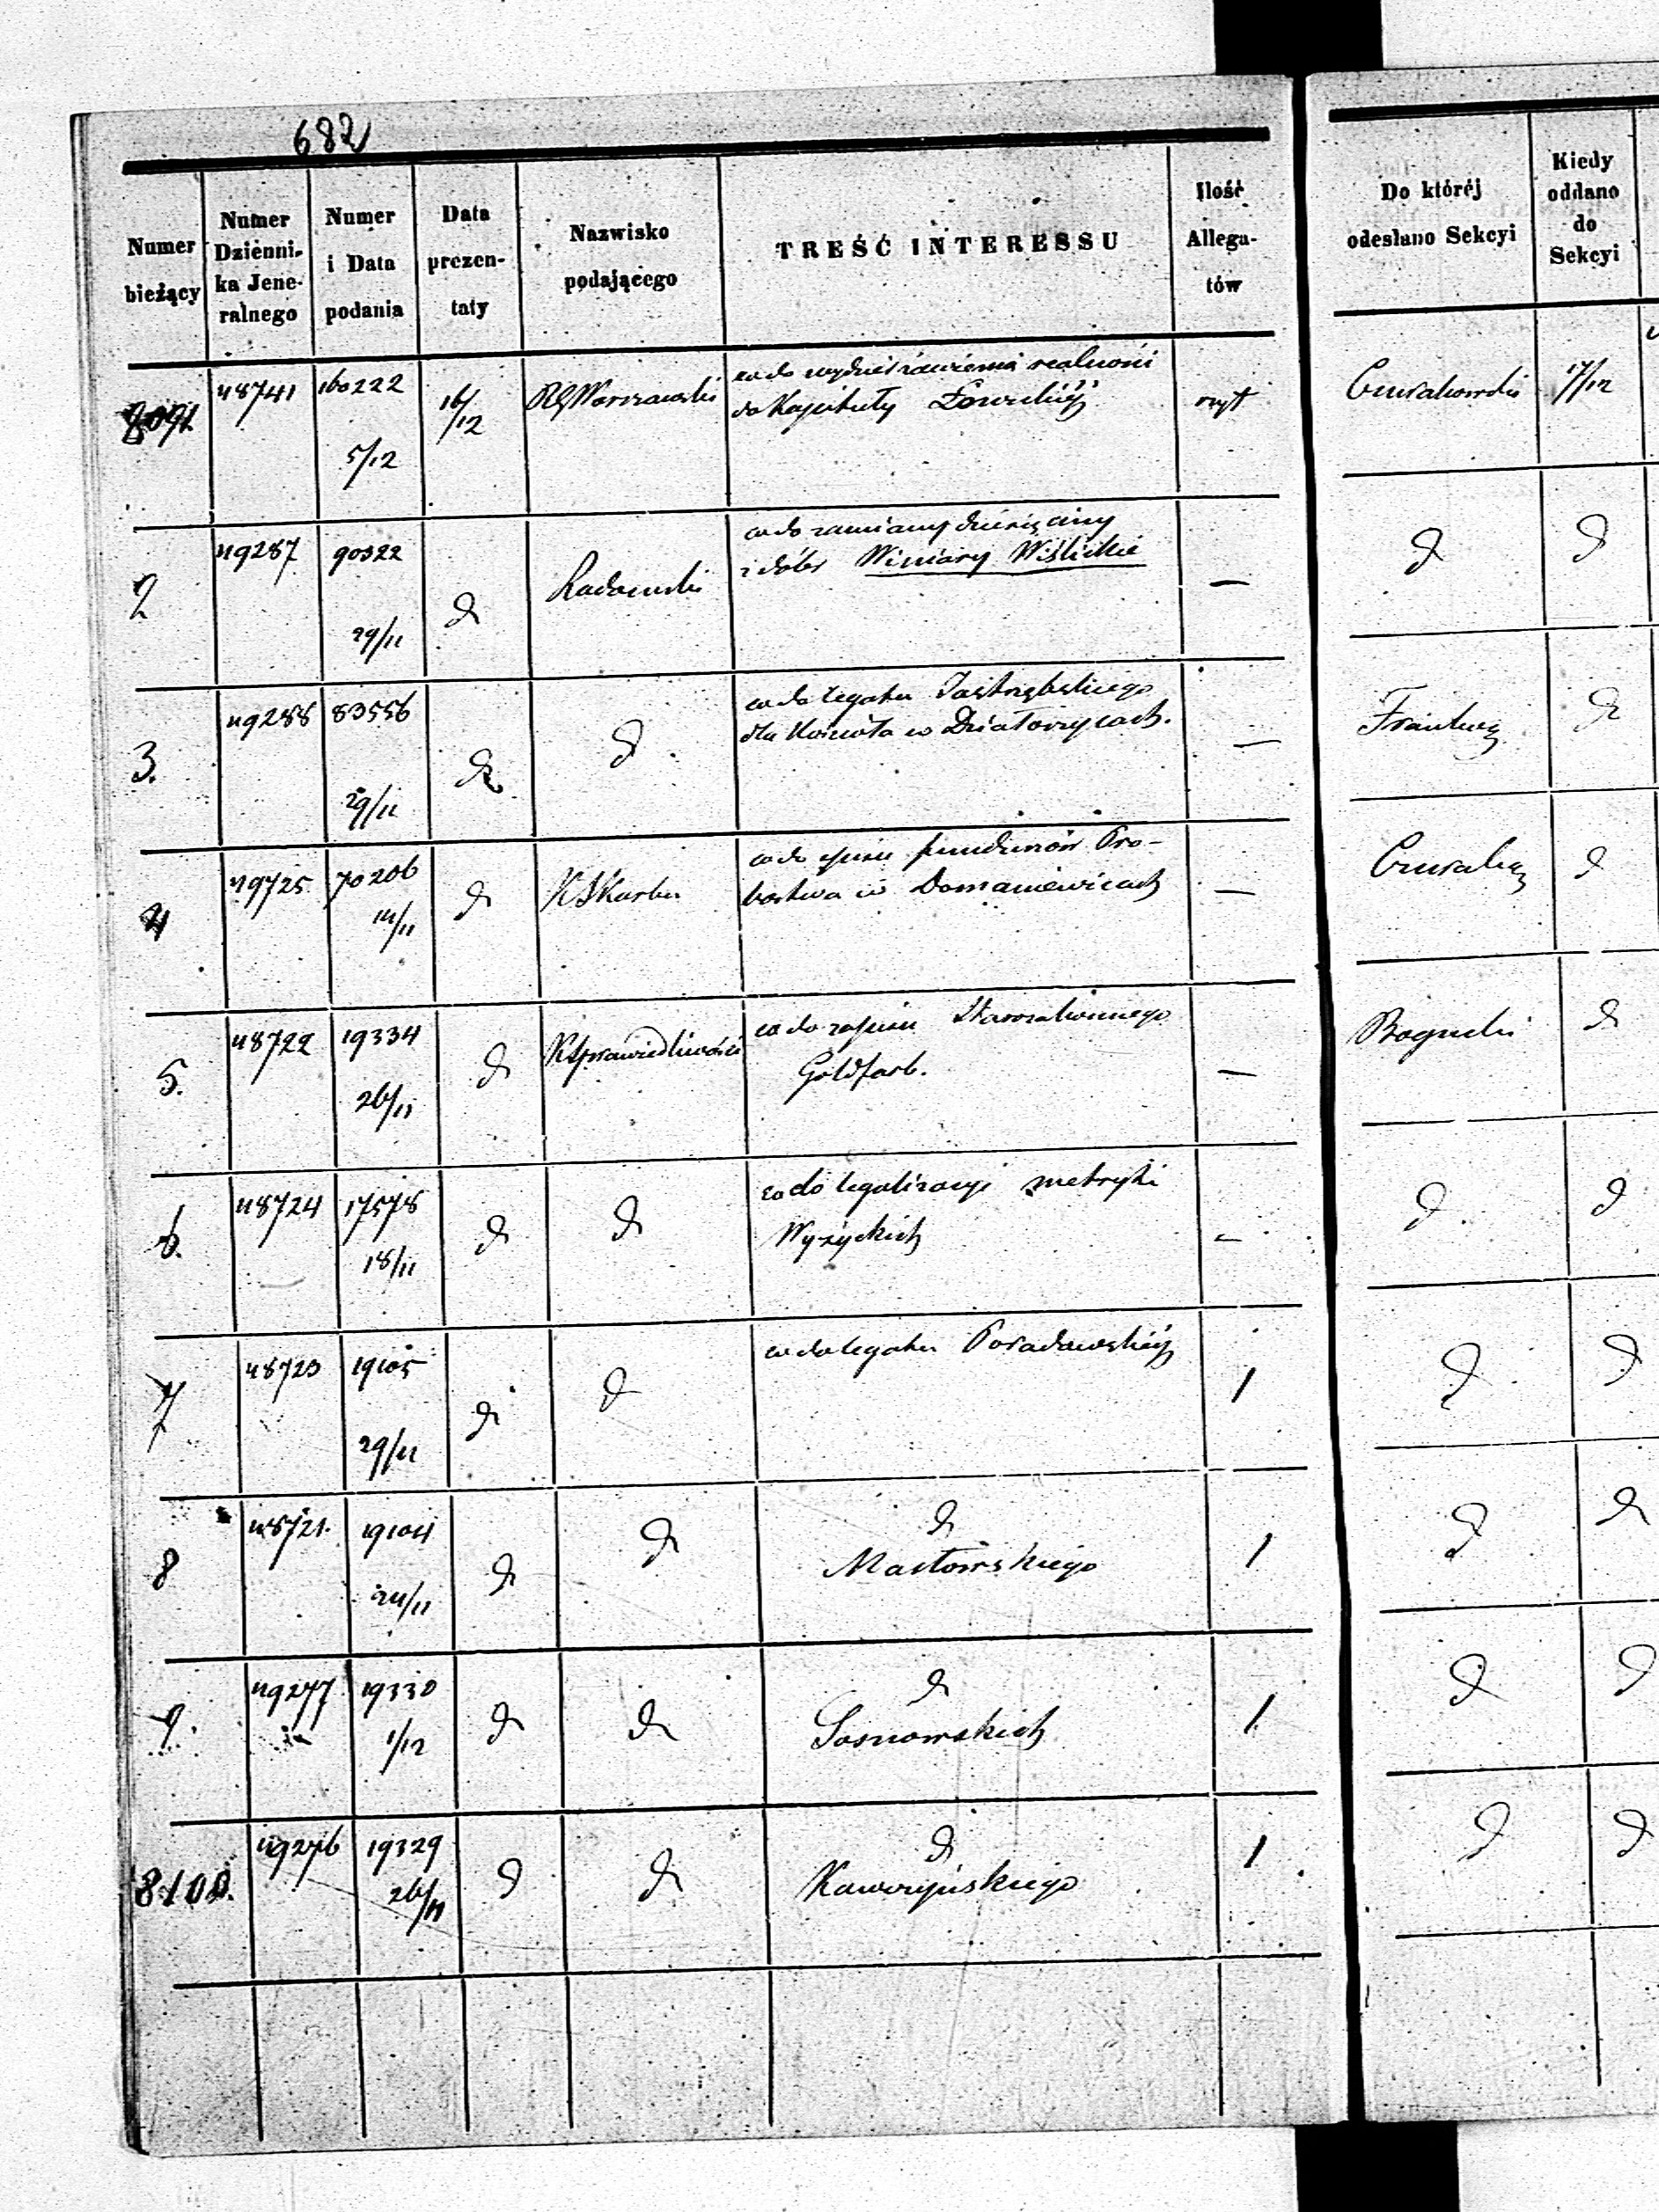 682
Numer bieżący
Numer Dzienni- ka Jene- ralnego
Numer i Data podania
Data prezen- taty
Nazwisko podającego
TREŚĆ INTERESSU
Ilość Allega- tów
Do któréj odesłano Sekcyi
Kiedy oddano do Sekcyi
8091 48741 160222 5/12 16/12 RG Warszawski co do wydzierżawienia realności
do Kapituły Łowickiéj 17/12
2 49287 90322 29/11 d Radomski co do zamiany dziesięciny
z dóbr Winiary Wiślickie — d d
3. 49288 83556 29/11 d d co do legatu Jastrzębskiego
dla Kościoła w Działoszycach. — d
4 49725 70206 14/11 d KSkarbu co do funduszów Pro-
bostwa w Domaniewicach — d
5. 48722 19334 26/11 d KSprawiedliwości co do
Goldfarb. — d
6. 48724 17578 18/11 d d co do legalizacyi metryki
Wyzyckich — d d
7 48723 19105 29/11 d d co do legatu Posadowskiéj 1 d d
8 48721. 19104 24/11 d d d
Masłowskiego 1 d d
9. 49277 19330 1/12 d d d
Sosnowskich 1 d d
8100. 49276 19329 26/11 d d d
Kawczyńskiego 1 d d